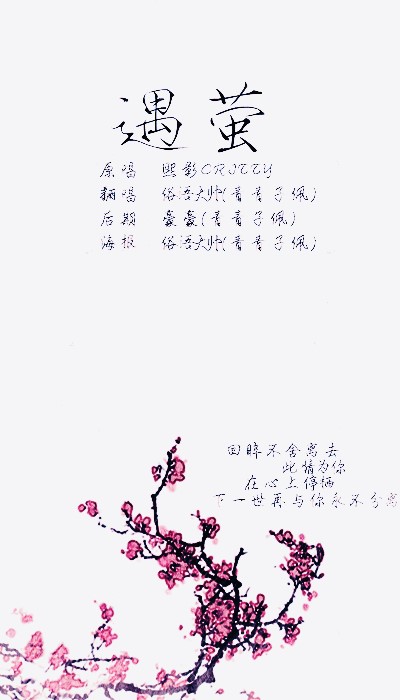 遇萤
原唱 熙影CRITTY
翻唱 俗语大帅(青青子佩)
后期 豪豪(青青子佩)
海报 俗语大帅(青青子佩)
回眸不舍离去
此情为你
在心上停栖
下一世再与你永不分离